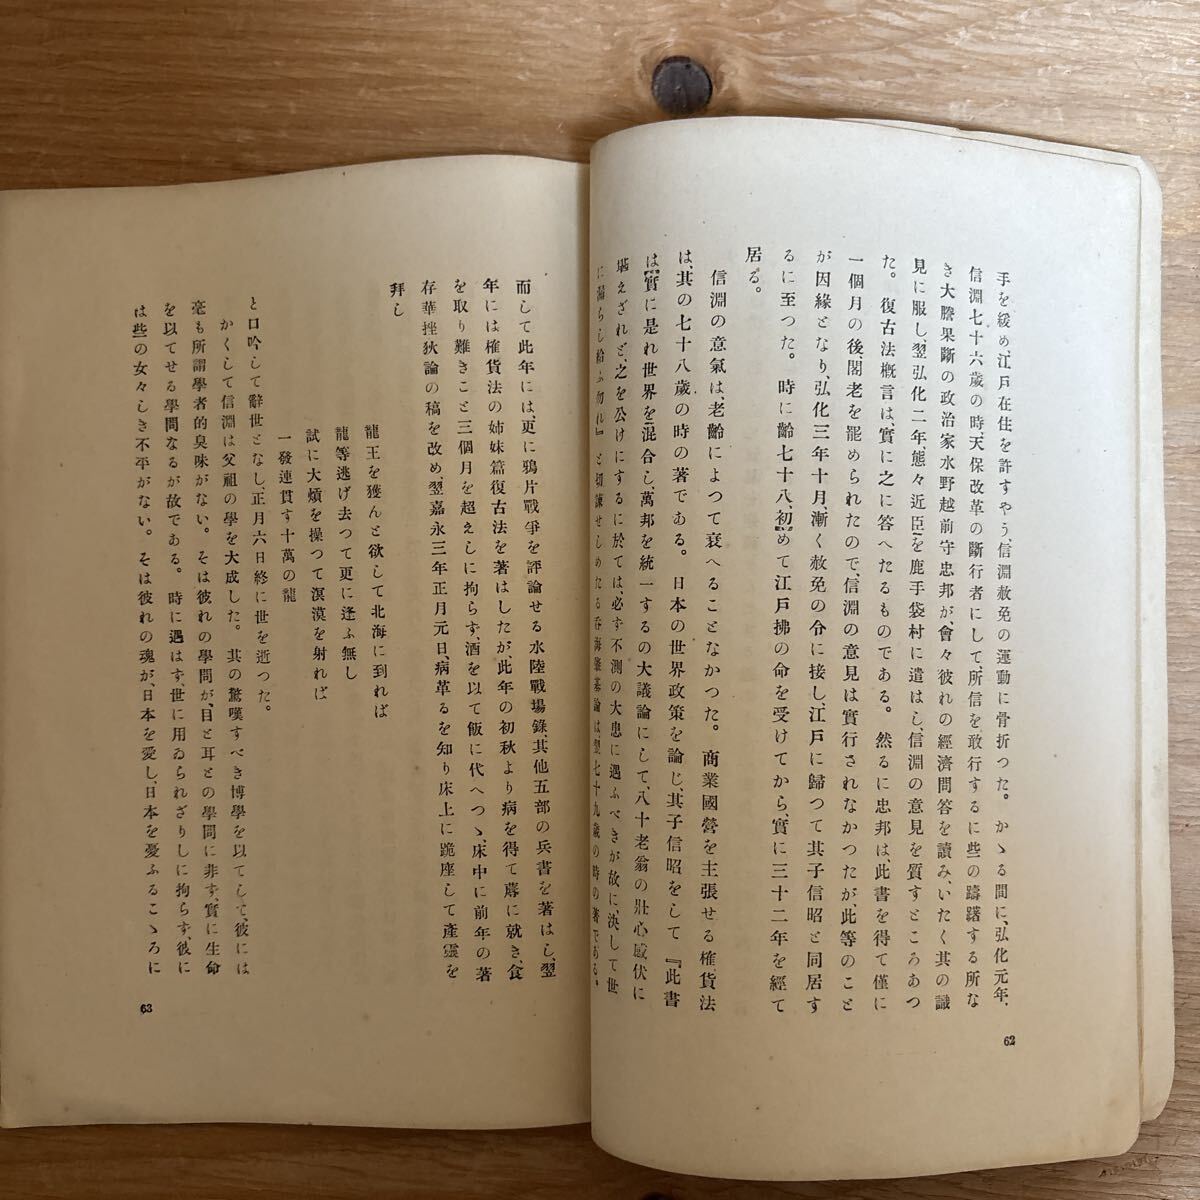 手を緩め、江戸在住を許すやう、信淵赦免の運動に骨折つた。かゝる間に、弘化元年、
信淵七十六歳の時、天保改革の斷行者にして、所信を敢行するに些の躊躇する所な
き大膽果斷の政治家水野越前守忠邦が、會々彼れの經濟問答を讀み、いたく其の識
見に服し、翌弘化二年、態々近臣を鹿手袋村に遣はし、信淵の意見を質すところあつ
た。復古法概言は、實に之に答へたるものである。然るに忠邦は、此書を得て僅に
一個月の後、閣老を罷められたので、信淵の意見は實行されなかつたが、此等のこと
が因緣となり、弘化三年十月、漸く赦免の令に接し、江戸に歸つて其子信昭と同居す
るに至つた。時に齡七十八、初めて江戸拂の命を受けてから、實に三十二年を經て
居る。
信淵の意氣は、老齡によつて衰へることなかつた。商業國營を主張せる権貨法
は、其の七十八歳の時の著である。日本の世界政策を論じ、其子信昭をして『此書
は實に是れ世界を混合し、萬邦を統一するの大議論にして、八十老翁の壯心感伏に
堪えざれど、之を公けにするに於ては、必ず不測の大患に遇ふべきが故に、決して世
に漏らし給ふ勿れ』と切諫せしめたる呑海肇基論は、翌七十九歳の時の著である。
62
而して此年には、更に鴉片戰爭を評論せる水陸戰場錄、其他五部の兵書を著はし、翌
年には権貨法の姉妹篇復古法を著はしたが、此年の初秋より病を得て蓐に就き、食
を取り難きこと三個月を超えしに拘らず、酒を以て飯に代へつゝ、床中に前年の著
存華挫狄論の稿を改め、翌嘉永三年正月元日、病革るを知り床上に跪座して產靈を
拜し
龍王を獲んと欲して北海に到れば
龍等逃げ去つて更に逢ふ無し
試に大熕を操つて溟漠を射れば
一發連貫す十萬の龍
と口吟して辭世となし、正月六日終に世を逝つた。
かくして信淵は父祖の學を大成した。其の驚嘆すべき博學を以てして、彼には
毫も所謂學者的臭味がない。そは彼れの學問が、目と耳との學問に非ず、實に生命
を以てせる學問なるが故である。時に遇はず、世に用ゐられざりしに拘らず、彼に
は些の女々しき不平がない。そは彼れの魂が、日本を愛し、日本を憂ふるこゝろに
63